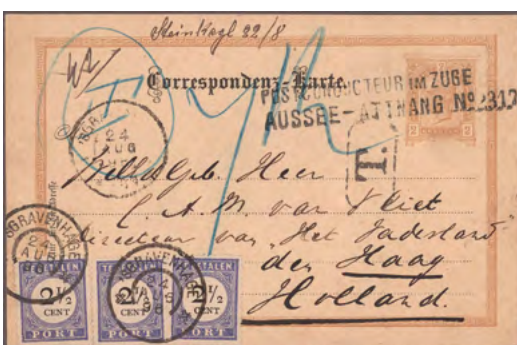 Steinkogl 22/8
Correspondenz-Karte.
POSTCONDUCTEUR IM ZUGE
AUSSEE-ATTNANG No 2312
2 2
24
AUG
T.
Heer
C. A. M. van Vliet
Directeur van "Het Vaderland"
den Haag
Holland.
'SGRAVENHAGE
24
AUG
'SGRAVENHAGE
24
AUG
BETALEN
2½
CENT
PORT
BETALEN
2½
CENT
PORT
BETALEN
2½
CENT
PORT